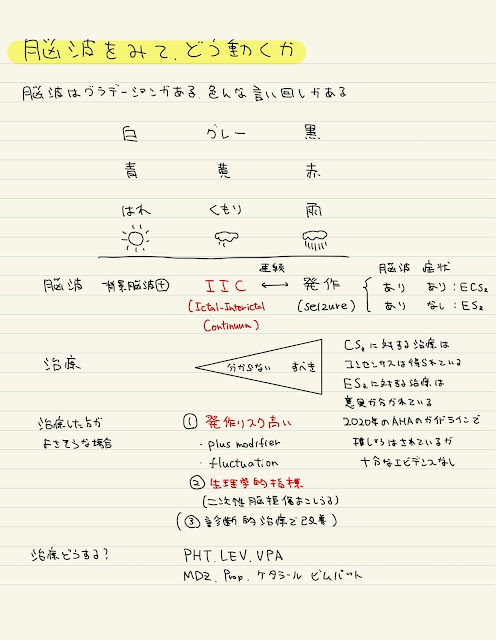 脳波をみて、どう動くか
脳波はグラデーションがある、色んな言い回しがある
白 グレー 黒
青 黄 赤
はれ くもり 雨
脳波 背景脳波+ IIC 連続 ↔ 発作 脳波 症状
(Ictal-Interictal Continuum) (seizure) あり あり:ECSz
あり なし:ESz
治療 分からない すべき
CSzに対する治療は
コンセンサスは得られている
ESzに対する治療は
意見が分かれている
2020年のAHAのガイドラインで
推しょうはされているが
十分なエビデンスなし
治療した方が
よさそうな場合
① 発作リスク高い
・plus modifier
・fluctuation
② 生理学的指標
(二次性脳損傷おこしうる)
(③ 診断的治療で改善)
治療どうする?
PHT、LEV、VPA
MDZ、Prop、ケタラール ビムパット